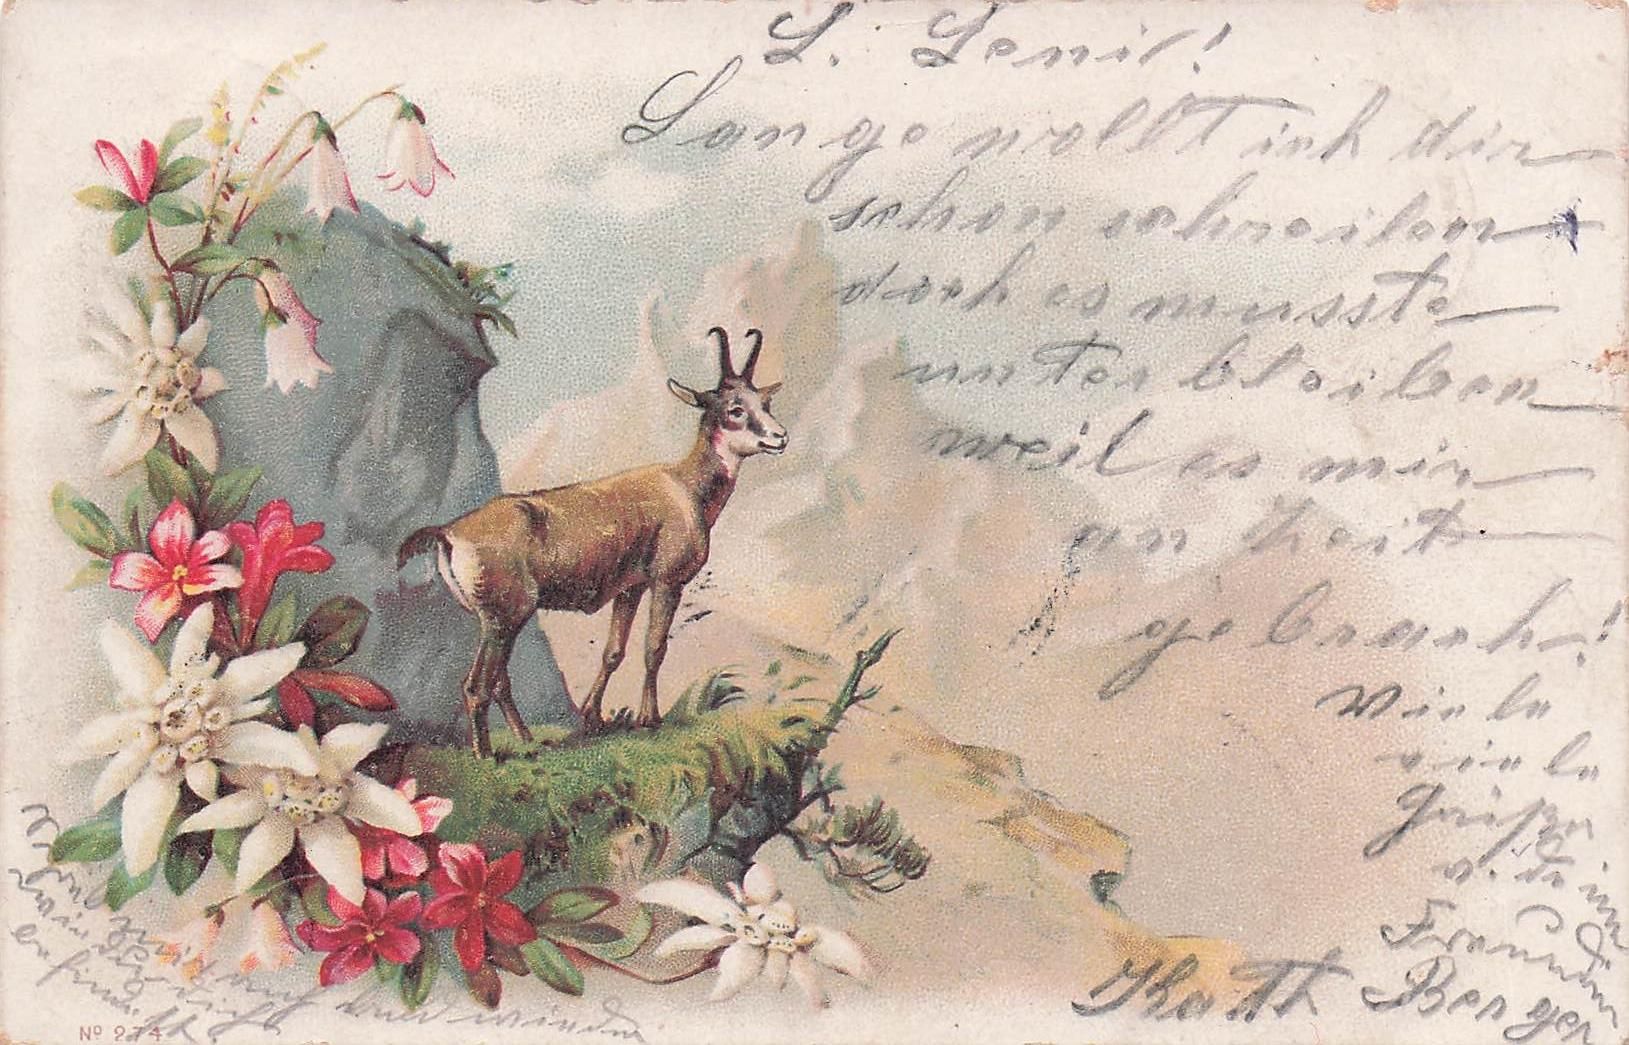 L. Leni!
Lange wollt ich dir
schon schreiben
doch es musste
unterbleiben
weil es mir
an Zeit
gebrach!
Viele
viele
Grüße
v. dein
Freundin
Kath Berger
wie
du
befind
No 274